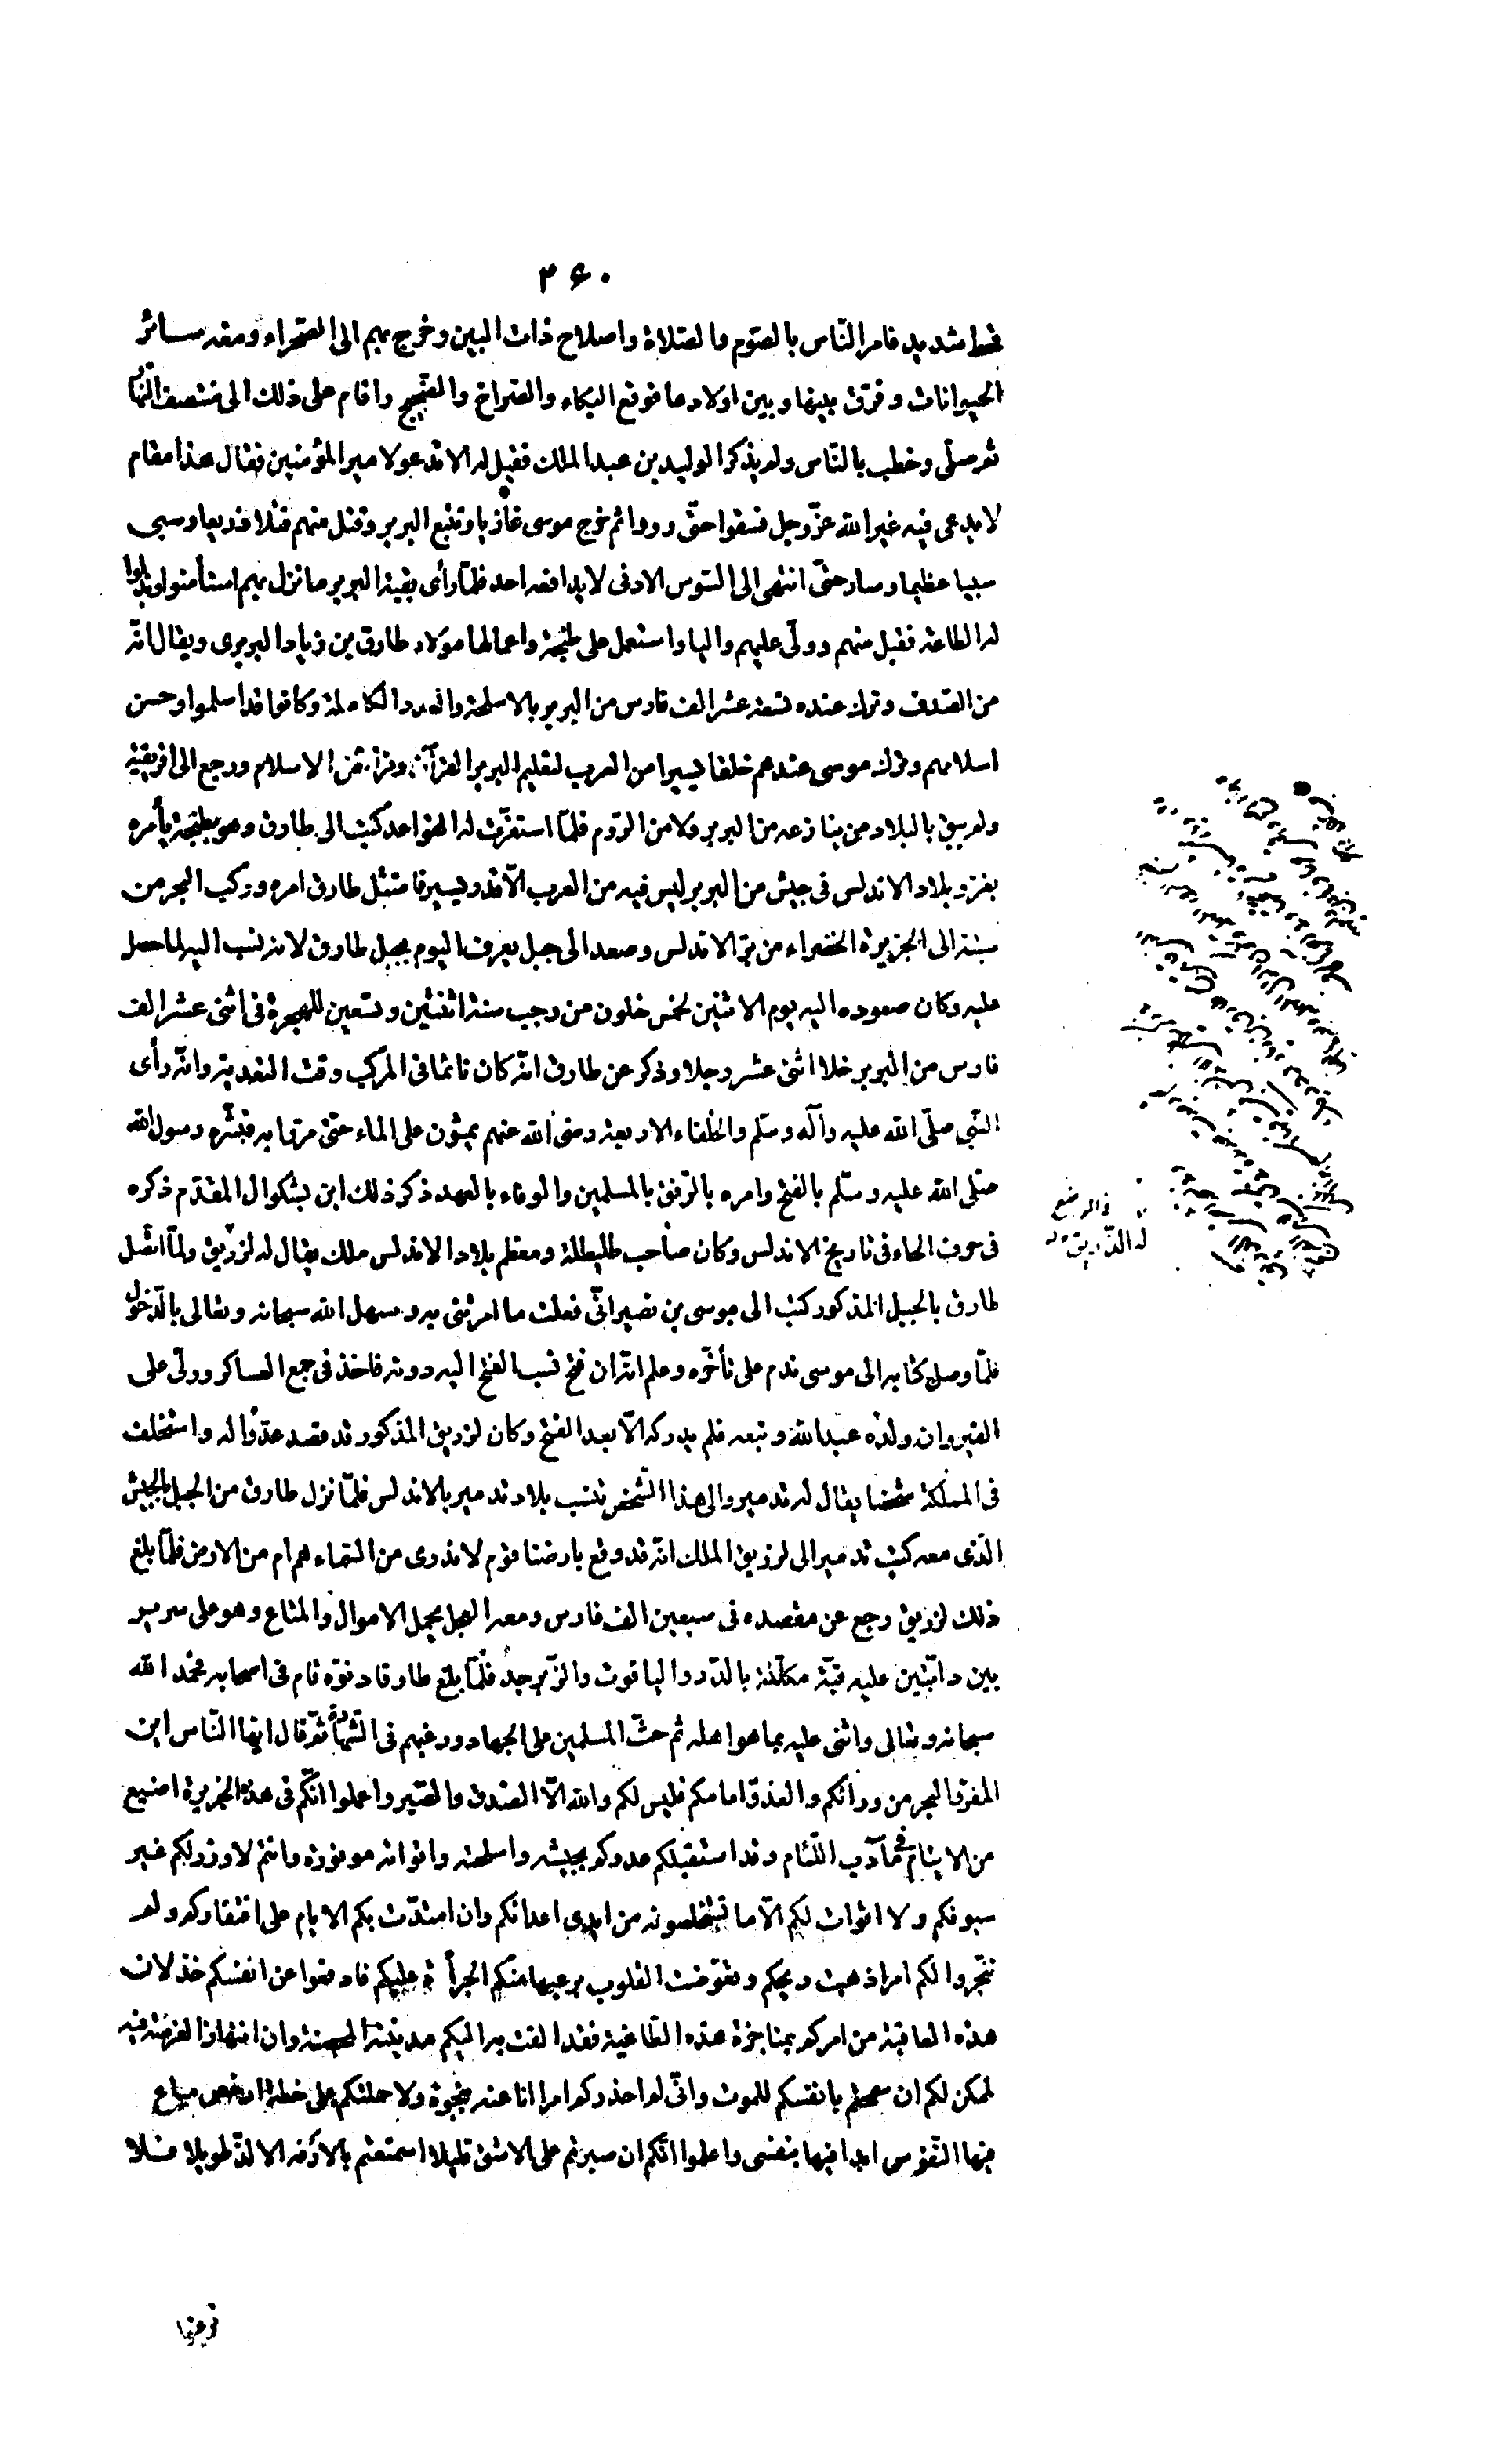 ٢۶٠
قحط شديد فامر النّاس بالصّوم والصّلاة واصلاح ذات البين وخرج بهم الى الصّحراء ومعه سائر
الحيوانات وفرّق بينها وبين اولادها فوقع البكاء والصّراخ والضّجيج واقام على ذلك الى منتصف النّهار
ثمّ صلّى وخطب بالنّاس ولم يذكر الوليد بن عبد الملك فقيل له الا تدعو لامير المؤمنين فقال هذا مقام
لا يدعى فيه غير الله عزّ وجل فسقوا حتّى رووا ثم خرج موسى غازيا وتتبع البربر وقتل منهم قتلا ذريعا وسبى
سبيا عظيما وسار حتّى انتهى الى السّوس الادنى لا يدافعه احد فلمّا رأى بقية البربر ما نزل بهم استأمنوا وبذلوا
له الطاعة فقبل منهم وولّى عليهم واليا واستعمل على طنجة واعمالها مولاه طارق بن زياد البربرى ويقال انّه
من الصّدف وترك عنده تسعة عشر الف فارس من البربر بالاسلحة والعدد الكاملة وكانوا قد اسلموا وحسن
اسلامهم وترك موسى عندهم خلقا يسيرا من العرب لتعليم البربر القرآن وفرائض الاسلام ورجع الى افريقية
ولم يبق بالبلاد من ينازعه من البربر ولا من الرّوم فلمّا استقرّت له القواعد كتب الى طارق وهو بطنجة يأمره
بغزو بلاد الاندلس فى جيش من البربر ليس فيه من العرب الّا قدر يسير فامتثل طارق امره وركب البحر من
سبتة الى الجزيرة الخضراء من برّ الاندلس وصعد الى جبل يعرف اليوم بجبل طارق لانه نسب اليه لما حصل
عليه وكان صعوده اليه يوم الاثنين لخمس خلون من رجب سنة اثنتين وتسعين للهجرة فى اثنى عشر الف
فارس من البربر خلا اثنى عشر رجلا وذكر عن طارق انّه كان نائما فى المركب وقت التعدية وانّه رأى
النّبى صلّى الله عليه وآله وسلّم والخلفاء الاربعة رضى الله عنهم يمشون على الماء حتّى مرّوا به فبشّره رسول الله
صلّى الله عليه وسلّم بالفتح وامره بالرّفق بالمسلمين والوفاء بالعهد ذكر ذلك ابن بشكوال المقدّم ذكره
فى حرف الخاء فى تاريخ الاندلس وكان صاحب طليطلة ومعظم بلاد الاندلس ملك يقال له لزريق ولمّا اتصل
طارق بالجبل المذكور كتب الى موسى بن نصير انّى فعلت ما امرتنى به وسهل الله سبحانه وتعالى بالدّخول
فلمّا وصل كتابه الى موسى ندم على تأخّره وعلم انّه ان فتح نسب الفتح اليه دونه فاخذ فى جمع العساكر وولّى على
القيروان ولده عبد الله وتبعه فلم يدركه الّا بعد الفتح وكان لزريق المذكور قد قصد عدّوا له واستخلف
فى المملكة شخصا يقال له تدمير والى هذا الشّخص تنسب بلاد تدمير بالاندلس فلمّا نزل طارق من الجبل بالجيش
الّذى معه كتب تدمير الى لزريق الملك انّه قد وقع بارضنا قوم لا ندرى من السّماء هم ام من الارض فلمّا بلغ
ذلك لزريق رجع عن مقصده فى سبعين الف فارس ومعه العجل يحمل الاموال والمتاع وهو على سرير
بين دابّتين عليه قبّة مكلّلة بالدّر والياقوت والزّبرجد فلمّا بلغ طارقا دنوّه قام فى اصحابه فحمد الله
سبحانه وتعالى واثنى عليه بما هو اهله ثم حثّ المسلمين على الجهاد ورغبهم فى الشّهادة ثمّ قال ايها النّاس اين
المفرّ البحر من ورائكم والعدوّ امامكم فليس لكم والله الّا الصّدق والصّبر واعلموا انّكم فى هذه الجزيرة اضيع
من الايتام فى مآدب اللّئام وقد استقبلكم عدوكم بجيشه واسلحته واقواته موفورة وانتم لا وزر لكم غير
سيوفكم ولا اقوات لكم الّا ما تستخلصونه من ايدى اعدائكم وان امتدّت بكم الايام على افتقاركم ولم
تنجّزوا لكم امرا ذهبت ريحكم وتعوّضت القلوب برعبها منكم الجرأة عليكم فادفعوا عن انفسكم خذلان
هذه العاقبة من امركم بمناجزة هذه الطّاغية فقد القت به اليكم مدينته المحصنة وان انتهاز الفرصة فيه
لممكن لكم ان سمحتم بانفسكم للموت وانّى لم احذركم امرا انا عنه بنجوة ولا حملتكم على خطة ارخص متاع
فيها النّفوس ابدا فيها بنفسى واعلموا انّكم ان صبرتم على الاشق قليلا استمتعتم بالارفه الالذّ طويلا فلا
ترغبوا